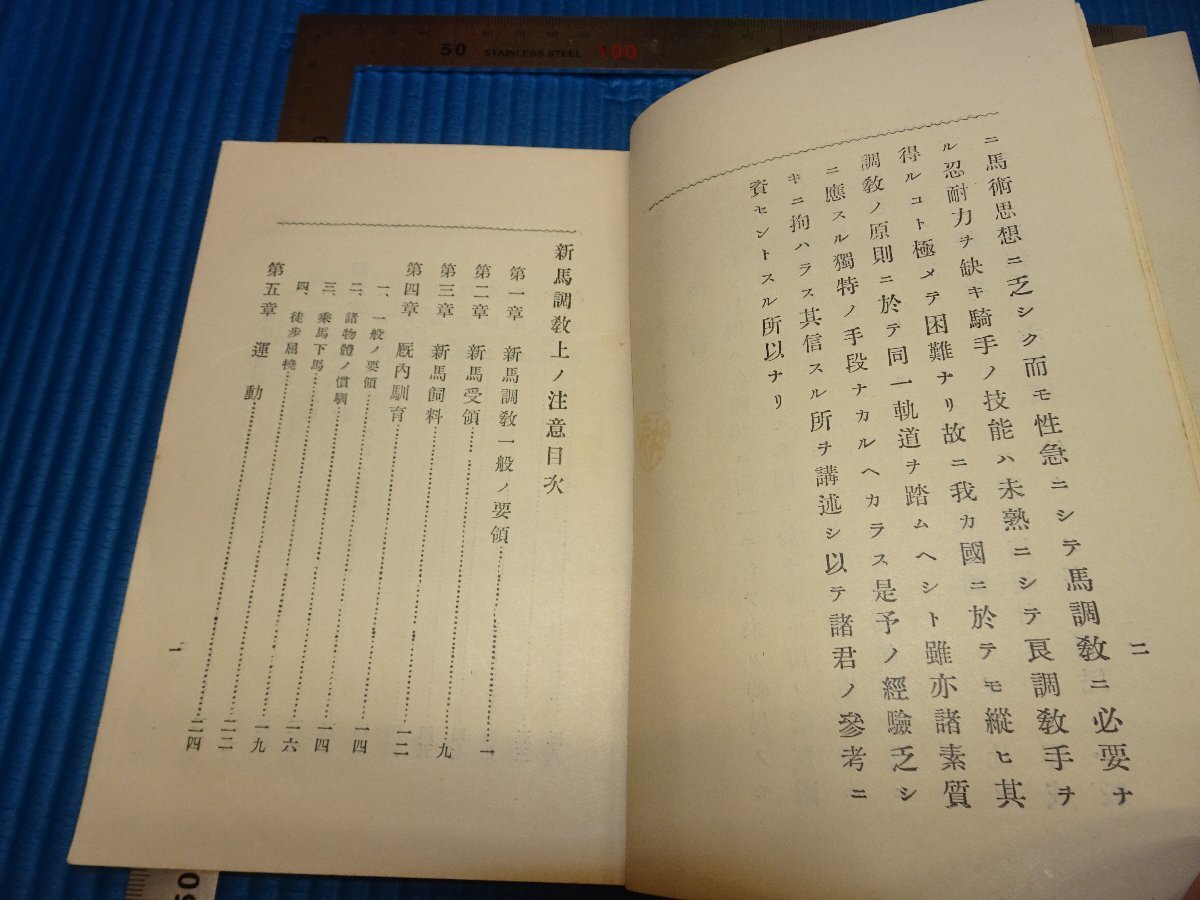 二
ニ馬術思想ニ乏シク而モ性急ニシテ馬調教ニ必要ナ
ル忍耐力ヲ缺キ騎手ノ技能ハ未熟ニシテ良調教手ヲ
得ルコト極メテ困難ナリ故ニ我カ國ニ於テモ縱ヒ其
調教ノ原則ニ於テ同一軌道ヲ踏ムヘシト雖亦諸素質
ニ應スル獨特ノ手段ナカルヘカラス是予ノ經驗乏シ
キニ拘ハラス其信スル所ヲ講述シ以テ諸君ノ參考ニ
資セントスル所以ナリ
新馬調教上ノ注意目次
第一章 新馬調教一般ノ要領……一
第二章 新馬受領……九
第三章 新馬飼料……一二
第四章 厩內馴育……一四
一、一般ノ要領……一四
二、諸物體ノ慣馴……一六
三、乘馬下馬……一九
四、徒步屈撓……二二
第五章 運動……二四
一
50 STAINLESS STEEL 100
50